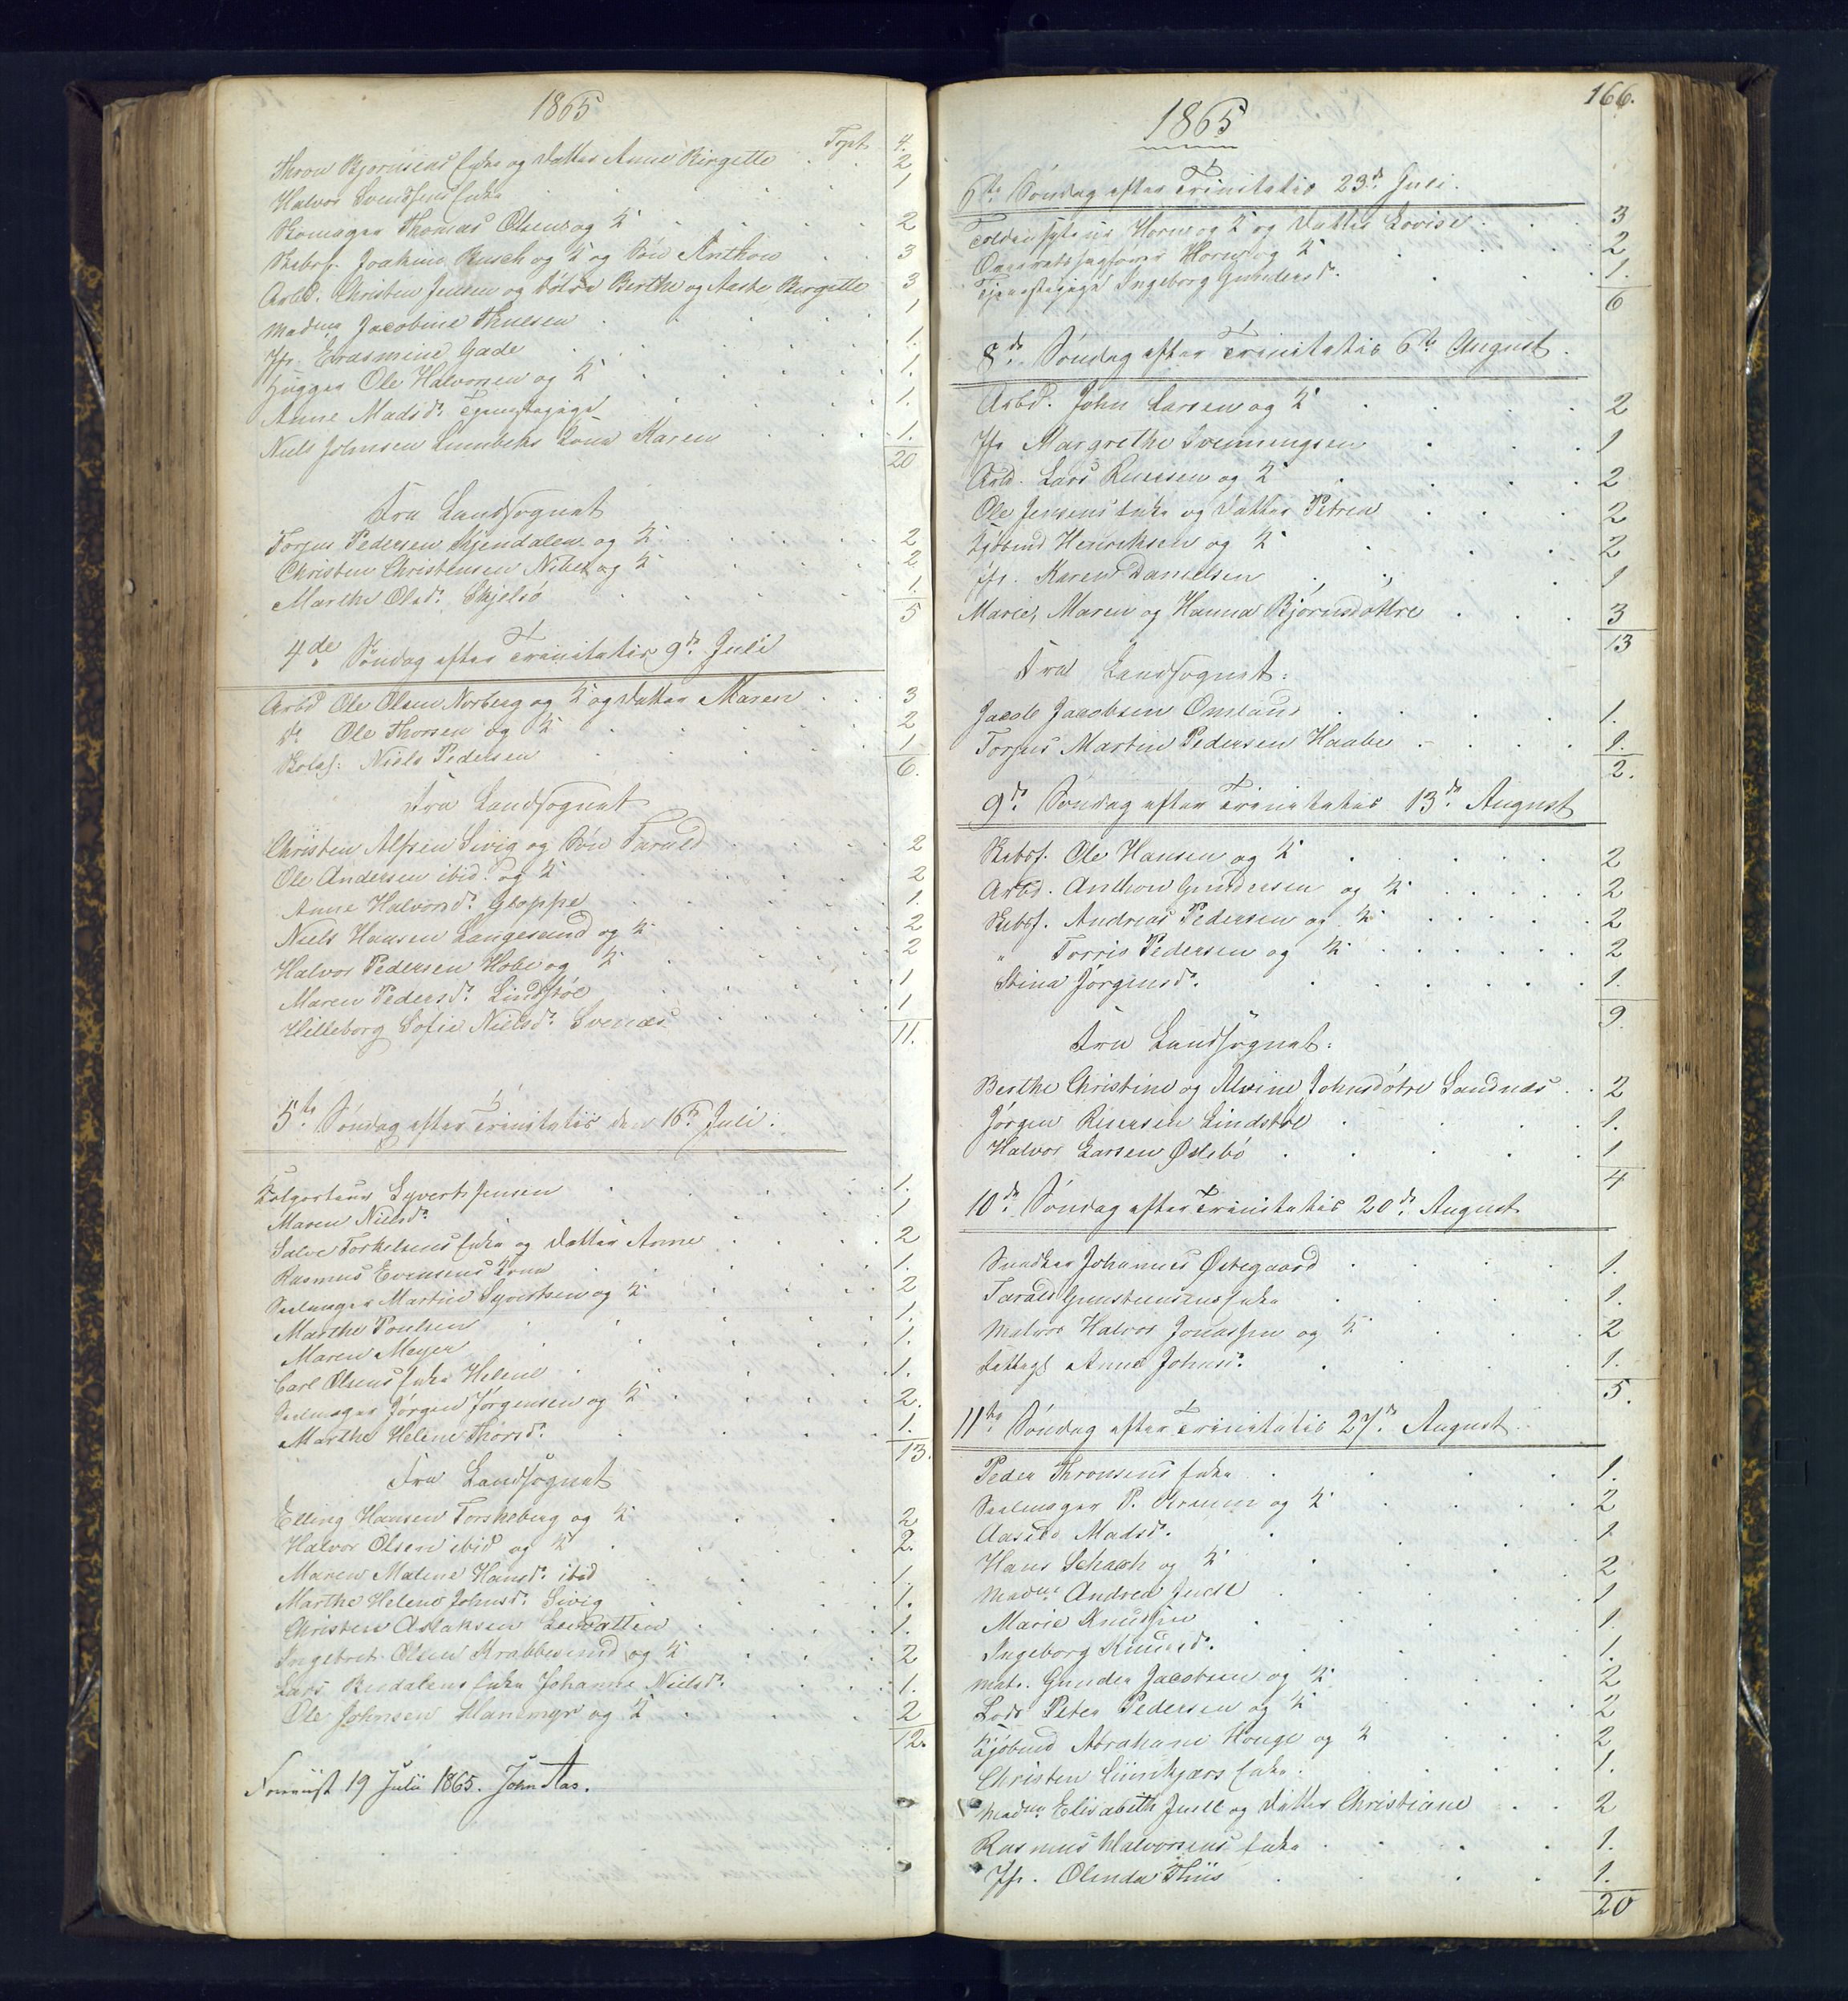 1865
Tpt. 4.
Thron Bjørnsens Enke og Datter Anne Birgitte . . 2
Halvor Svendsens Enke 1
Skomager Thomas Olsen og K. 2
Skibsf. Joakim Rusch og K. og Søn Anthon 3
Arbd. Christen Jensen og Døtre Berthe og Aaste Birgitte 3
Madme Jacobine Thulsen 1
Jfr. Erasmine Gade 1.
Hugger Ole Halvorsen og K. 1.
Anne Madsd. Tjenestepige 1.
Niels Johnsen Kone Karen 1.
20
Fra Landsognet
Torjus Pedersen Skjendalen og K. 2
Christen Christensen og K. 2
Marthe Olsd. Skjelsö 1.
5
4de Søndag efter Trinitatis 9de Juli
Arbd Ole Olsen Norberg og K. og Datter Maren 3
do Ole Thorsen og K. 2
Niels Pedersen 1
6.
Fra Landsognet
Christen Alfsen Sivig og Søn Tarald 2
Ole Andersen ibid. og K. 2
Anne Halvorsd. Gloppe 1.
Niels Hansen Langesund og K. 2
Halvor Pedersen Hobe og K. 2
Maren Pedersd. Lindstöl 1
Hilleborg Sofie Nielsd. Svenæs 1
11.
5te Søndag efter Trinitatis den 16de Juli.
Syvertsen 1.
Maren Nielsd. 1
Salve Torkelsens Enke og Datter Anne 2
Rasmus Evensens Kone 1.
Seilmager Martin Syvertsen og K. 2
Marthe Poulsen 1.
Maren Meyer 1.
Carl Olsens Enke Helene 1.
Seilmager Jörgen Jörgensen og K. 2.
Marthe Helene Thorsd. 1.
13.
Fra Landsognet
Elling Hansen Torskeberg og K. 2
Halvor Olsen ibid og K. 2.
Maren Malene Hansd. ibid 1.
Marthe Helene Johnsd. Sivig 1.
Christen Aslaksen 1.
Ingebret Olsen Krabbesund og K. 2
Lars Budalens Enke Johanne Nielsd. 1.
Ole Johnsen Hammyr og K. 2
12.
Fremvist 19 Julii 1865. John Aas.
166.
1865
6te Søndag efter Trinitatis 23de Juli.
Horn og K. og Datter Lovise 3
Overretssagfører Horn og K. 2
Tjenestepige Ingeborg Gundersd. 1.
6
8de Søndag efter Trinitatis 6te August.
Arbd. John Larsen og K. 2
Jfr Margrethe Svenningsen 1
Arbd. Lars Ruersen og K. 2
Ole Jensens Enke og Datter Petrea 2
Kjöbmd Henriksen og K. 2
Jfr. Karen Danielsen 1
Marie, Maren og Hanna Bjørnsdøttre 3
13
Fra Landsognet:
Jacob Jacobsen Omland 1.
Torjus Martin Pedersen Haabe 1.
2.
9de Søndag efter Trinitatis 13de August
Skibsf. Ole Hansen og K. 2
Arbd. Anthon Gundersen og K. 2
Skibsf. Andreas Pedersen og K. 2
" Torris Pedersen og K. 2
Stina Jörgensd. 1.
9.
Fra Landsognet:
Berthe Christine og Alvine Johnsdøtre Sandnæs 2
Jörgen Reiersen Lindstöl 1.
Halvor Larsen Oslebö 1
4
10de Søndag efter Trinitatis 20de August
Snedker Johannes Östegaard 1.
Tarald Gunstensens Enke 1.
Matros Halvor Jonassen og K. 2
Anne Johnsd. 1.
5.
11te Søndag efter Trinitatis 27de August
Peder Thronsens Enke 1.
Seilmager P. og K. 2
Aasild Madsd. 1
Hans Schach og K. 2
Madme Andrea Juell 1
Marie Knudsen 1.
Ingeborg Knudsd. 1.
Matr. Gunder Jacobsen og K. 2
Lods Peter Pedersen og K. 2
Kjöbmd Abraham Houge og K 2
Christen Enke. 1.
Madme Elisabeth Juell og Datter Christiane 2
Rasmus Halvorsens Enke 1.
Jfr. Olinda Thiis 1.
20